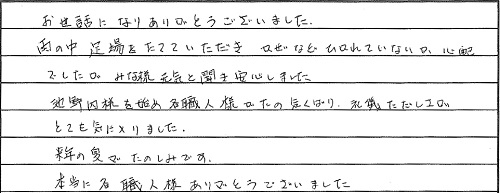 お世話になりありがとうございました.
雨の中 足場をたてていただき カゼなどひかれていないか 心配
でしたが みな様元気と聞き安心しました
池野内様を始め 各職人様がたの気くばり. 礼儀ただしさが
とても気に入りました.
来年の夏がたのしみです.
本当に各職人様 ありがとうございました